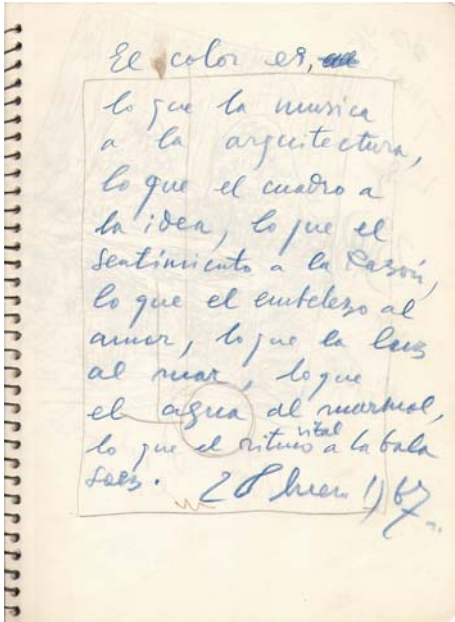 El color es,
lo que la musica
a la arquitectura,
lo que el cuadro a
la idea, lo que el
sentimiento a la Razón,
lo que el embelezo al
amor, lo que la luz
al mar, lo que
el agua al marmol,
lo que el ritmo vital a la bala
soez. 1967